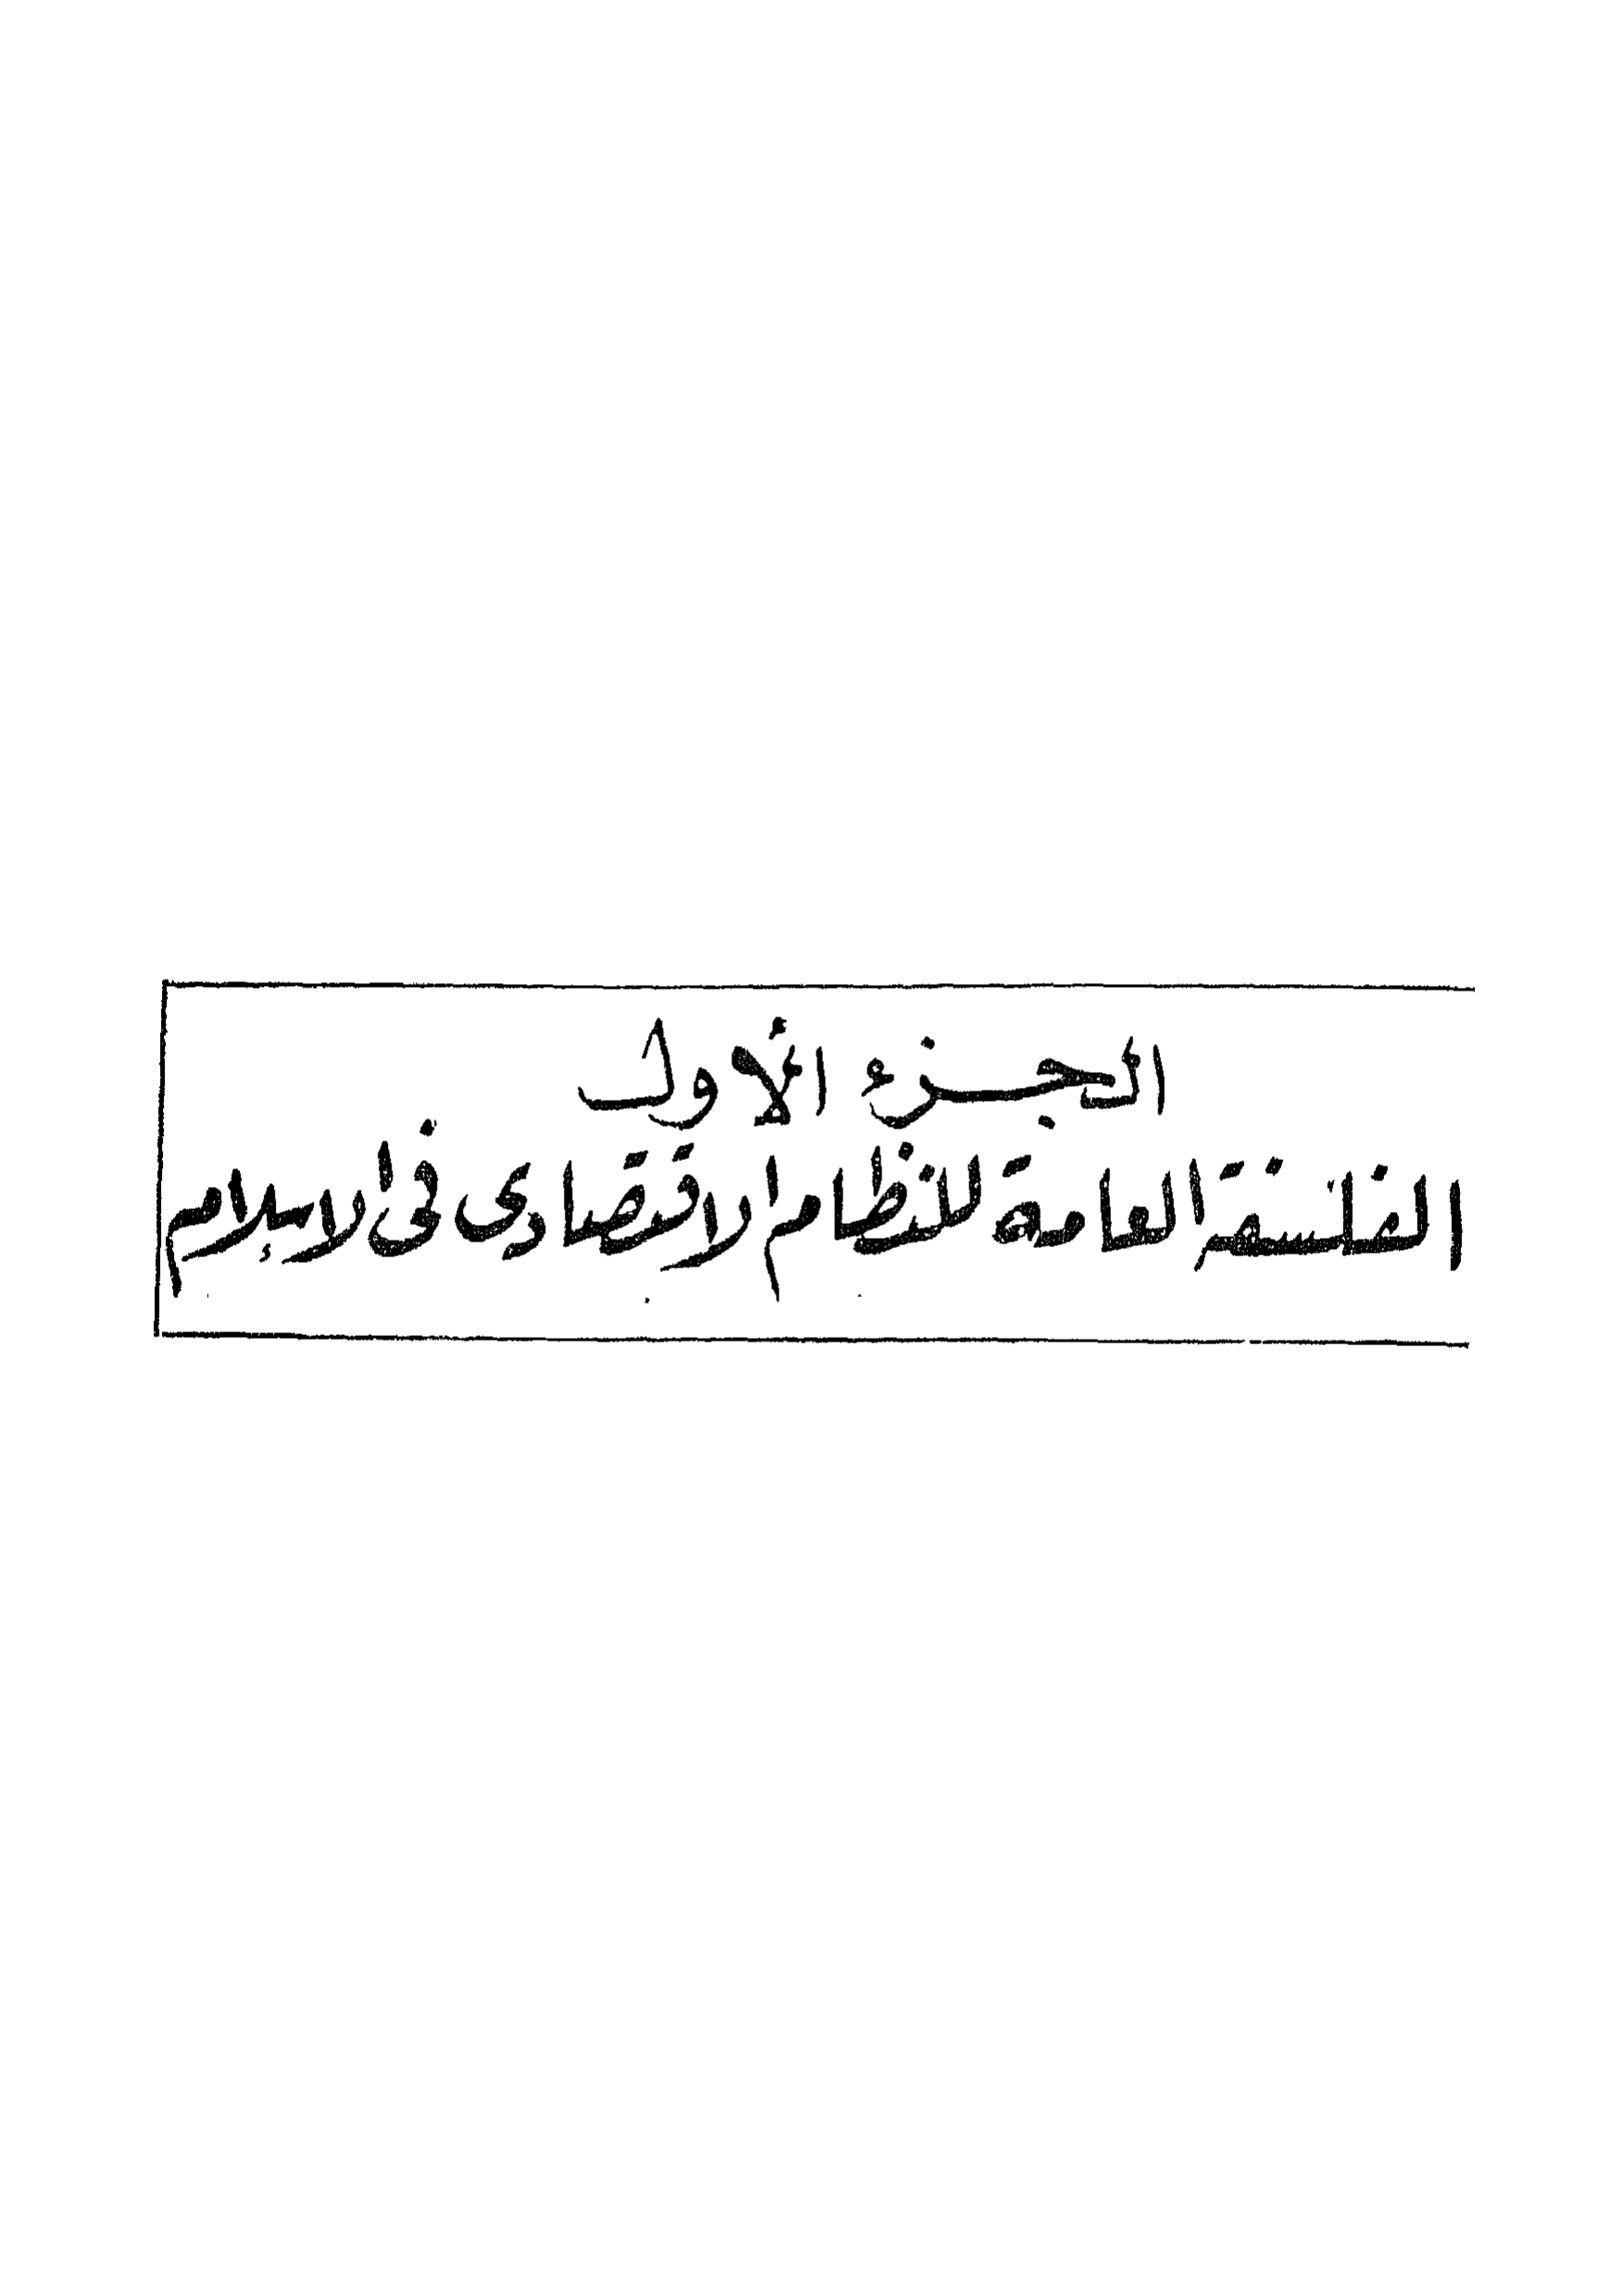 الجزء الأول
الفلسفة العامة للنظام الاقتصادى فى الإسلام